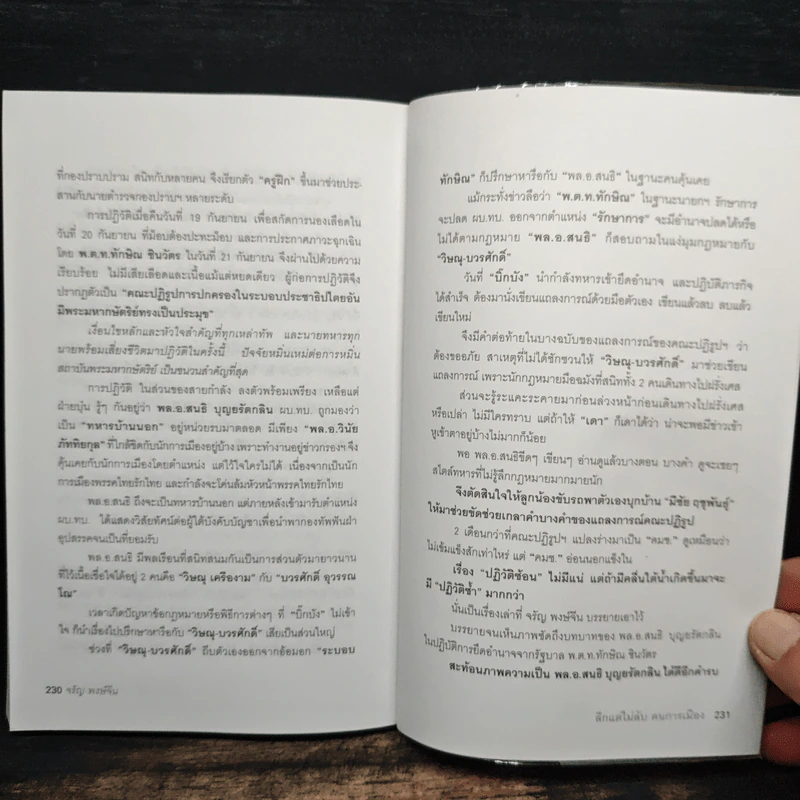 ที่กองปราบปราม สนิทกับหลายคน จึงเรียกตัว "ครูฝึก" ขึ้นมาช่วยประ-
สานกับนายตำรวจกองปราบฯ หลายระดับ
การปฏิวัติเมื่อคืนวันที่ 19 กันยายน เพื่อสกัดการนองเลือดใน
วันที่ 20 กันยายน ที่ม็อบต้องปะทะม็อบ และการประกาศภาวะฉุกเฉิน
โดย พ.ต.ท.ทักษิณ ชินวัตร ในวันที่ 21 กันยายน จึงผ่านไปด้วยความ
เรียบร้อย ไม่มีเสียเลือดและเนื้อแม้แต่หยดเดียว ผู้ก่อการปฏิวัติจึง
ปรากฏตัวเป็น "คณะปฏิรูปการปกครองในระบอบประชาธิปไตยอัน
มีพระมหากษัตริย์ทรงเป็นประมุข"
เงื่อนไขหลักและหัวใจสำคัญที่ทุกเหล่าทัพ และนายทหารทุก
นายพร้อมเสี่ยงชีวิตมาปฏิวัติในครั้งนี้ ปัจจัยหมิ่นเหม่ต่อการหมิ่น
สถาบันพระมหากษัตริย์ เป็นชนวนสำคัญที่สุด
การปฏิวัติ ในส่วนของสายกำลัง ลงตัวพร้อมเพรียง เหลือแต่
ฝ่ายบุ๋น รู้ๆ กันอยู่ว่า พล.อ.สนธิ บุญยรัตกลิน ผบ.ทบ. ถูกมองว่า
เป็น "ทหารบ้านนอก" อยู่หน่วยรบมาตลอด มีเพียง "พล.อ.วินัย
ภัททิยกุล" ที่ใกล้ชิดกับนักการเมืองอยู่บ้าง เพราะทำงานอยู่ข่าวกรองฯ จึง
คุ้นเคยกับนักการเมืองโดยตำแหน่ง แต่ไว้ใจใครไม่ได้ เนื่องจากเป็นนัก
การเมืองพรรคไทยรักไทย และกำลังจะโค่นล้มหัวหน้าพรรคไทยรักไทย
พล.อ.สนธิ ถึงจะเป็นทหารบ้านนอก แต่ภายหลังเข้ามารับตำแหน่ง
ผบ.ทบ. ได้แสดงวิสัยทัศน์ต่อผู้ใต้บังคับบัญชาเพื่อนำพากองทัพฟันฝ่า
อุปสรรคจนเป็นที่ยอมรับ
พล.อ.สนธิ มีพลเรือนที่สนิทสนมกันเป็นการส่วนตัวมายาวนาน
ที่ไว้เนื้อเชื่อใจได้อยู่ 2 คนคือ "วิษณุ เครืองาม" กับ "บวรศักดิ์ อุวรรณ
โณ"
เวลาเกิดปัญหาข้อกฎหมายหรือพิธีการต่างๆ ที่ "บิ๊กบัง" ไม่เข้า
ใจ ก็นำเรื่องไปปรึกษาหารือกับ "วิษณุ-บวรศักดิ์" เสียเป็นส่วนใหญ่
ช่วงที่ "วิษณุ-บวรศักดิ์" ถีบตัวเองออกจากอ้อมอก "ระบอบ
230 จรัญ พงษ์จีน
ทักษิณ" ก็ปรึกษาหารือกับ "พล.อ.สนธิ" ในฐานะคนคุ้นเคย
แม้กระทั่งข่าวลือว่า "พ.ต.ท.ทักษิณ" ในฐานะนายกฯ รักษาการ
จะปลด ผบ.ทบ. ออกจากตำแหน่ง "รักษาการ" จะมีอำนาจปลดได้หรือ
ไม่ได้ตามกฎหมาย "พล.อ.สนธิ" ก็สอบถามในแง่มุมกฎหมายกับ
"วิษณุ-บวรศักดิ์"
วันที่ "บิ๊กบัง" นำกำลังทหารเข้ายึดอำนาจ และปฏิบัติภารกิจ
ได้สำเร็จ ต้องมานั่งเขียนแถลงการณ์ด้วยมือตัวเอง เขียนแล้วลบ ลบแล้ว
เขียนใหม่
จึงมีคำต่อท้ายในบางฉบับของแถลงการณ์ของคณะปฏิรูปฯ ว่า
ต้องขออภัย สาเหตุที่ไม่ได้ชักชวนให้ "วิษณุ-บวรศักดิ์" มาช่วยเขียน
แถลงการณ์ เพราะนักกฎหมายมือฉมังที่สนิททั้ง 2 คนเดินทางไปฝรั่งเศส
ส่วนจะรู้ระแคะระคายมาก่อนล่วงหน้าก่อนเดินทางไปฝรั่งเศส
หรือเปล่า ไม่มีใครทราบ แต่ถ้าให้ "เดา" ก็เดาได้ว่า น่าจะพอมีข่าวเข้า
หูเข้าตาอยู่บ้างไม่มากก็น้อย
พอ พล.อ.สนธิขีดๆ เขียนๆ อ่านดูแล้วบางตอน บางคำ ดูจะเชยๆ
สไตล์ทหารที่ไม่รู้ลึกกฎหมายมากมายนัก
จึงตัดสินใจให้ลูกน้องขับรถพาตัวเองบุกบ้าน "มีชัย ฤชุพันธุ์"
ให้มาช่วยขัดช่วยเกลาคำบางคำของแถลงการณ์คณะปฏิรูป
2 เดือนกว่าที่คณะปฏิรูปฯ แปลงร่างมาเป็น "คมช." ดูเหมือนว่า
ไม่เข้มแข็งสักเท่าไหร่ แต่ "คมช." อ่อนนอกแข็งใน
เรื่อง "ปฏิวัติซ้อน" ไม่มีแน่ แต่ถ้ามีคลื่นใต้น้ำเกิดขึ้นมาจะ
มี "ปฏิวัติซ้ำ" มากกว่า
นั่นเป็นเรื่องเล่าที่ จรัญ พงษ์จีน บรรยายเอาไว้
บรรยายจนเห็นภาพชัดถึงบทบาทของ พล.อ.สนธิ บุญยรัตกลิน
ในปฏิบัติการยึดอำนาจจากรัฐบาล พ.ต.ท.ทักษิณ ชินวัตร
สะท้อนภาพความเป็น พล.อ.สนธิ บุญยรัตกลิน ได้ดีอีกคำรบ
ลึกแต่ไม่ลับ คนการเมือง 231